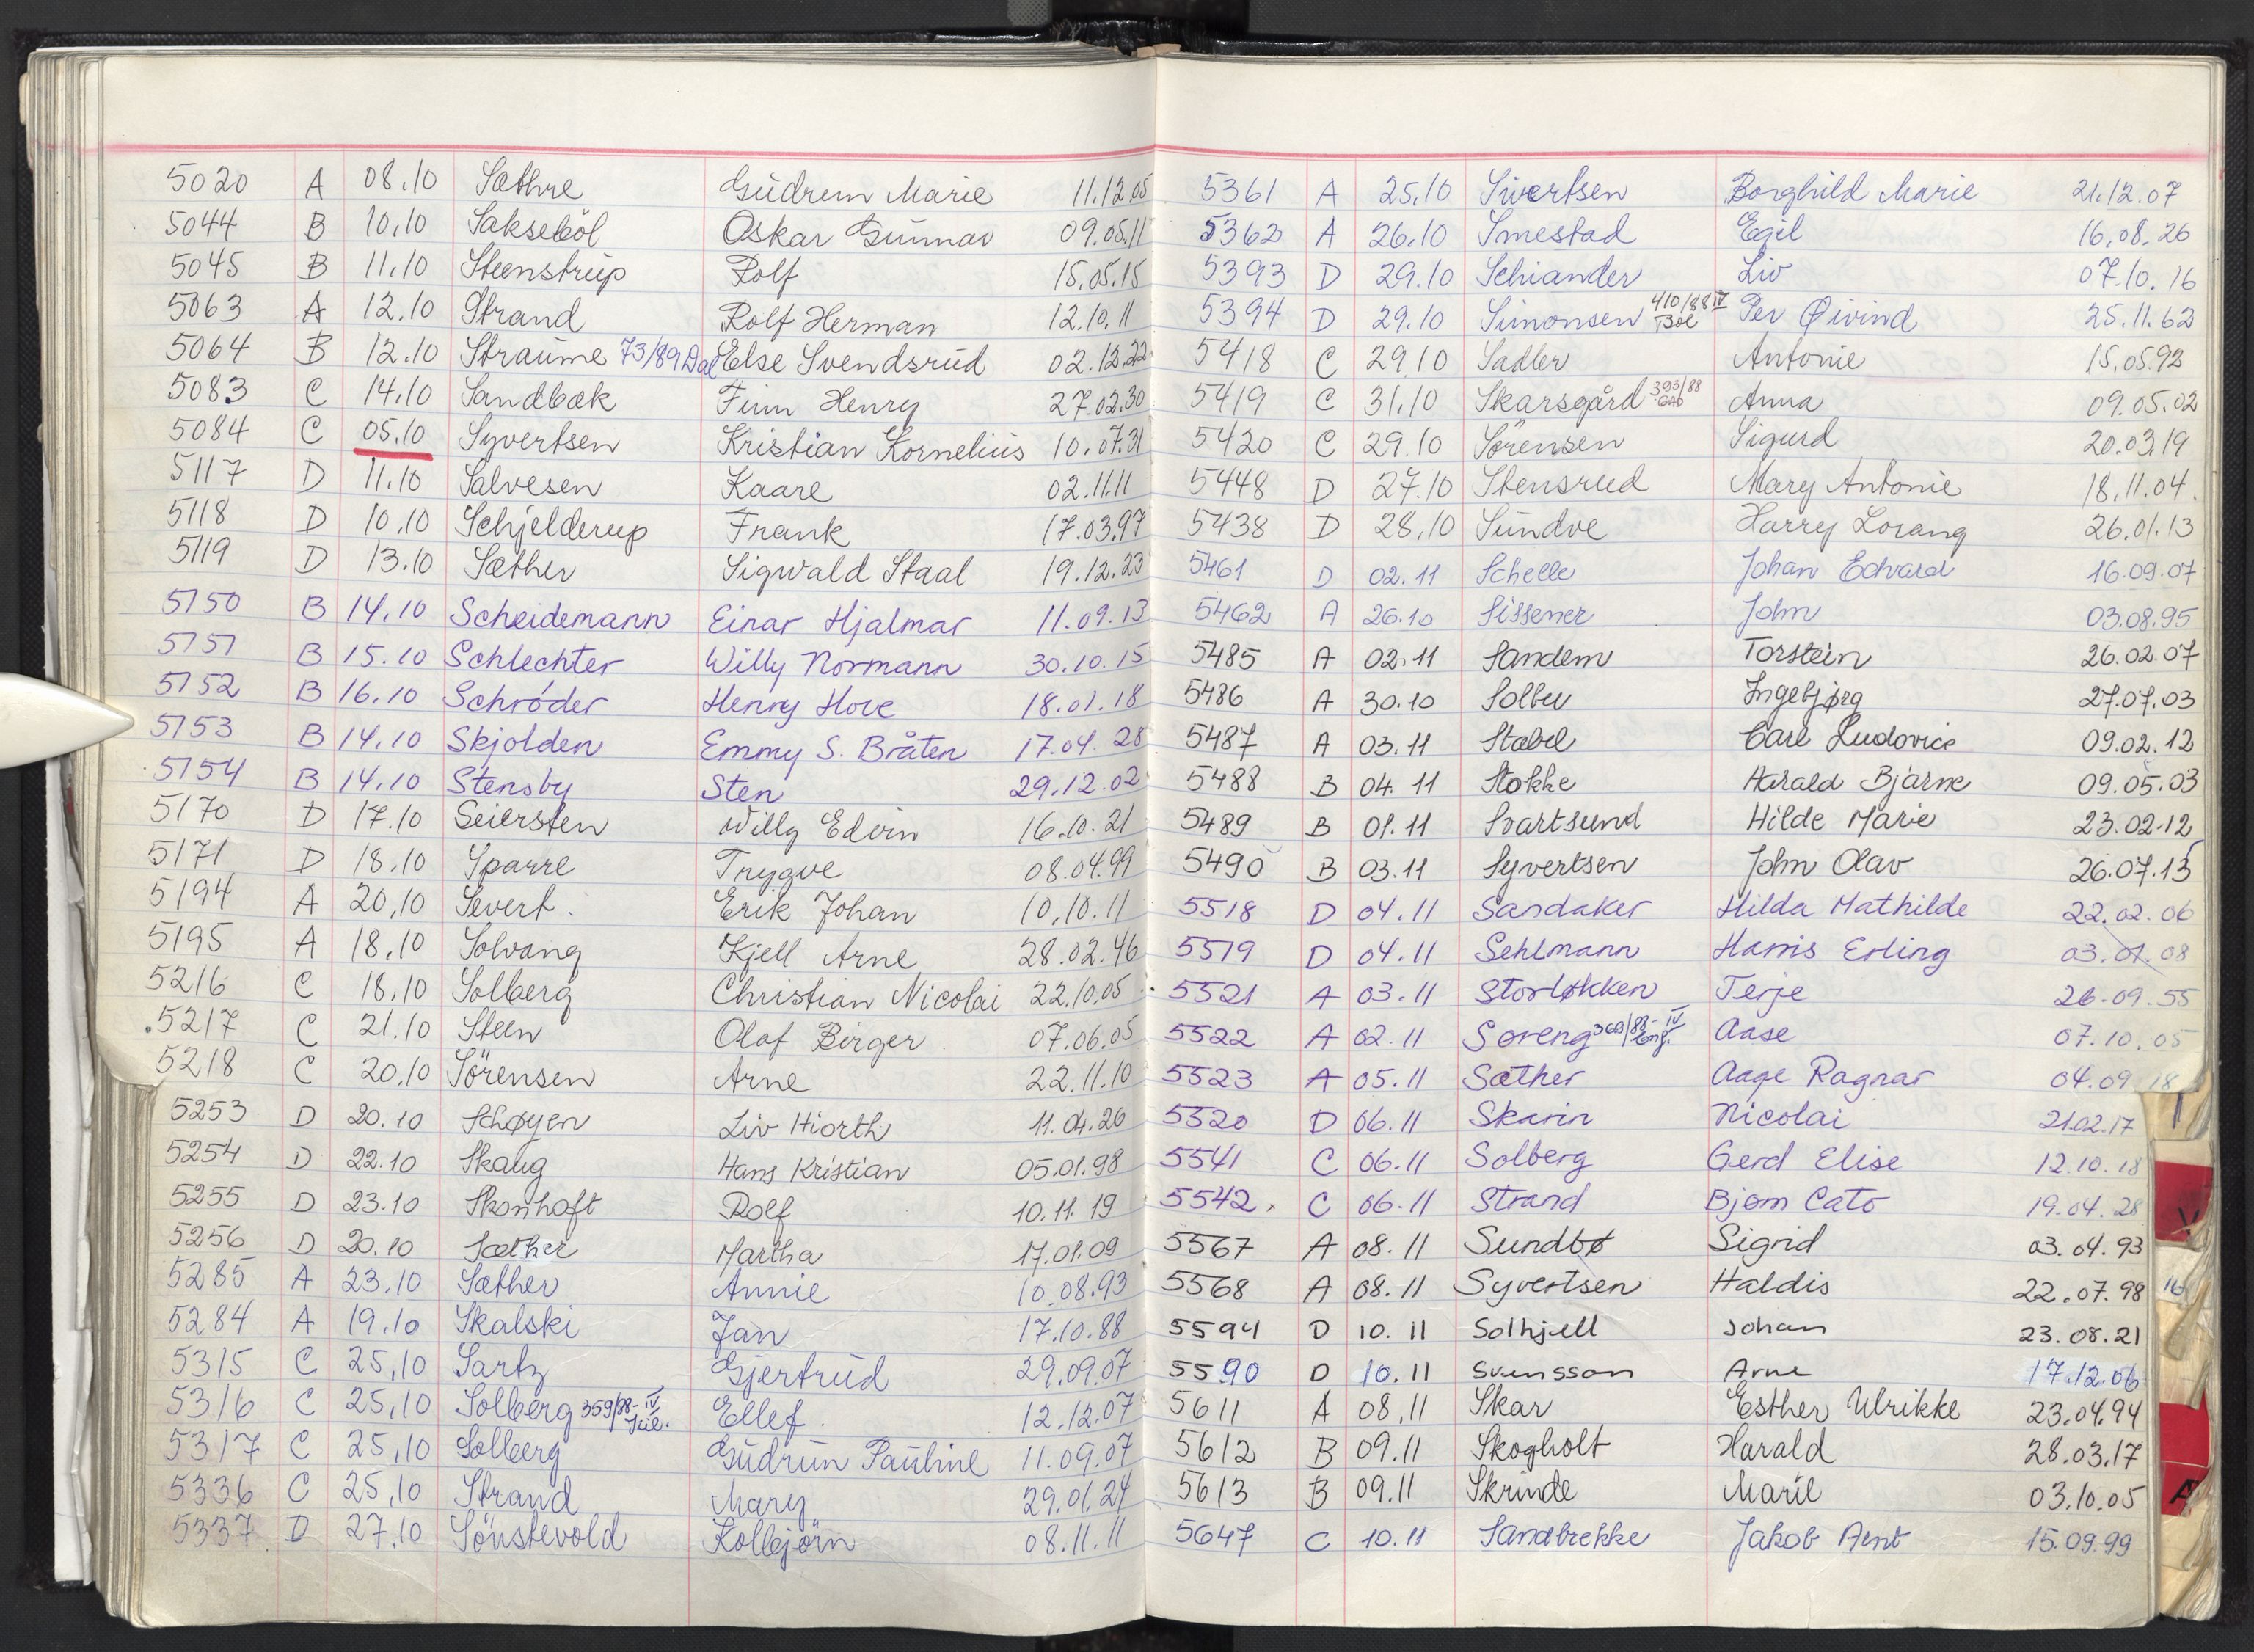 5020 A 08.10 Sæthre Gudrun Marie 11.12.05
5044 B 10.10 Sakseböl Oskar Gunnar 09.05.11
5045 B 11.10 Steenstrup Rolf 15.05.15
5063 A 12.10 Strand Rolf Herman 12.10.11
5064 B 12.10 Straume 73/89 Dal Else Svendsrud 02.12.22
5083 C 14.10 Sandbæk Finn Henry 27.02.30
5084 C 05.10 Syvertsen Kristian Kornelius 10.07.31
5117 D 11.10 Salvesen Kaare 02.11.11
5118 D 10.10 Schjelderup Frank 17.03.97
5119 D 13.10 Sæther Sigwald Staal 19.12.23
5150 B 14.10 Scheidemann Einar Hjalmar 11.09.13
5151 B 15.10 Schlechter Willy Normann 30.10.15
5152 B 16.10 Schröder Henry Hove 18.01.18
5153 B 14.10 Skjolden Emmy S. Bråten 17.04.28
5154 B 14.10 Stensby Sten 29.12.02
5170 D 17.10 Seiersten Willy Edvin 16.10.21
5171 D 18.10 Sparre Trygve 08.04.99
5194 A 20.10 Severt. Erik Johan 10.10.11
5195 A 18.10 Solvang Kjell Arne 28.02.46
5216 C 18.10 Solberg Christian Nicolai 22.10.05
5217 C 21.10 Steen Olaf Birger 07.06.05
5218 C 20.10 Sörensen Arne 22.11.10
5253 D 20.10 Schøyen Liv Hiorth 11.04.20
5254 D 22.10 Skaug Hans Kristian 05.01.98
5255 D 23.10 Skonhoft Rolf 10.11.19
5256 D 20.10 Sæther Martha 17.01.09
5285 A 23.10 Sæther Annie 10.08.93
5284 A 19.10 Skalski Jan 17.10.88
5315 C 25.10 Sartz Gjertrud 29.09.07
5316 C 25.10 Solberg 359/88-IV Ellef. 12.12.07
5317 C 25.10 Solberg Gudrun Pauline 11.09.07
5336 C 25.10 Strand Mary 29.01.24
5337 D 27.10 Sönstevold Kolbjörn 08.11.11
5361 A 25.10 Sivertsen Borghild Marie 21.12.07
5362 A 26.10 Smestad Egil 16.08.26
5393 D 29.10 Schiander Liv 07.10.16
5394 D 29.10 Simonsen 410/88 IV Böe Per Øivind 25.11.62
5418 C 29.10 Sadler Antonie 15.05.92
5419 C 31.10 Skarsgård 393/88 GAD Anna 09.05.02
5420 C 29.10 Sörensen Sigurd 20.03.19
5448 D 27.10 Stensrud Mary Antonie 18.11.04.
5438 D 28.10 Sundve Harry Lorang 26.01.13
5461 D 02.11 Schelle Johan Edvard 16.09.07
5462 A 26.10 Sissener John 03.08.95
5485 A 02.11 Sandem Torstein 26.02.07
5486 A 30.10 Solbu Ingebjørg 27.07.03
5487 A 03.11 Stabel Carl Ludovico 09.02.12
5488 B 04.11 Stokke Harald Bjarne 09.05.03
5489 B 01.11 Svartsund Hilde Marie 23.02.12
5490 B 03.11 Syvertsen John Olav 26.07.13
5518 D 04.11 Sandaker Hilda Mathilde 22.02.06
5519 D 04.11 Sehlmann Harris Erling 03.01.08
5521 A 03.11 Storløkken Terje 26.09.55
5522 A 02.11 Soreng Aase 07.10.05
5523 A 05.11 Sæther Aage Ragnar 04.09.18
5520 D 06.11 Skarin Nicolai 21.02.17
5541 C 06.11 Solberg Gerd Elise 12.10.18
5542. C 06.11 Strand Bjørn Cato 19.04.28
5567 A 08.11 Sundbø Sigrid 03.04.93
5568 A 08.11 Syvertsen Haldis 22.07.98
5594 D 10.11 Solhjell Johan 23.08.21
5590 D 10.11 Svensson Arne 17.12.06
5611 A 08.11 Skar Esther Ulrikke 23.04.94
5612 B 09.11 Skogholt Harald 28.03.17
5613 B 09.11 Skrinde Maril 03.10.05
5647 C 10.11 Sandbrekke Jakob Arnt 15.09.99